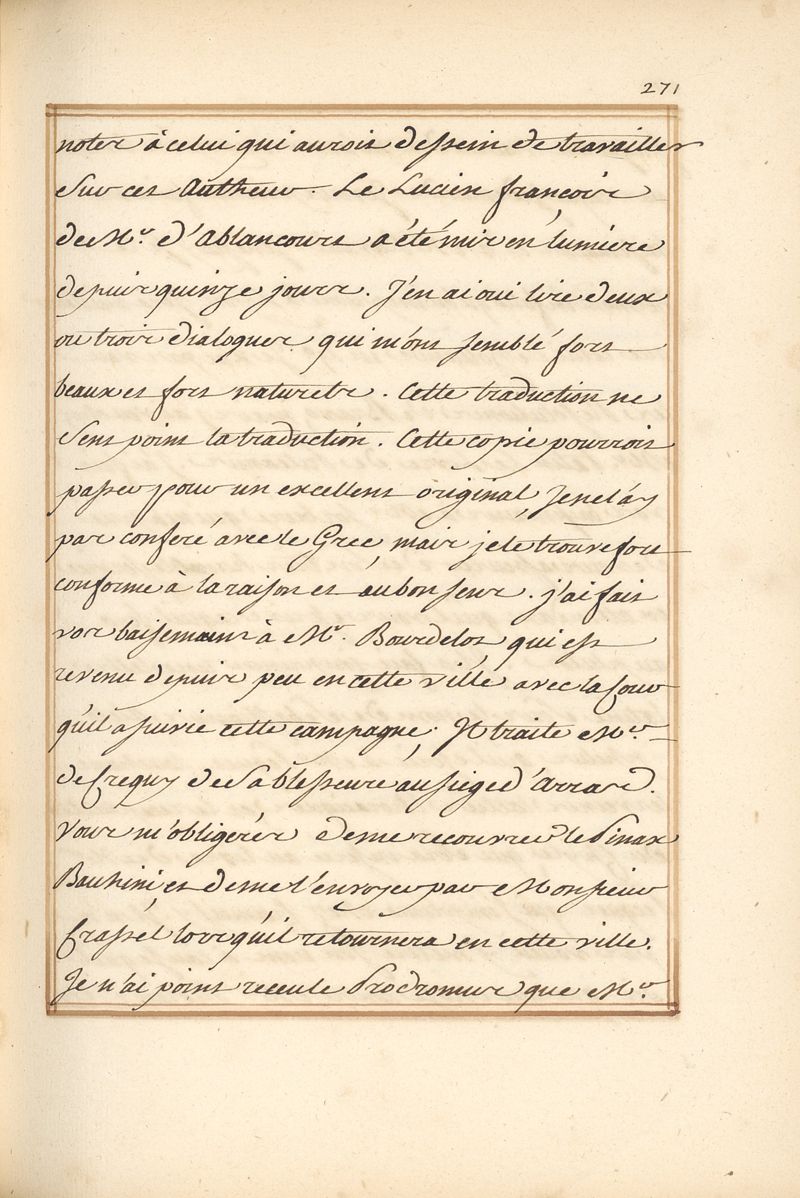 271
noter à celui qui auroit dessein de travailler
sur ces Autheur. Le Lucien françois
de Mr. d'Ablancourt a été mis en lumiere
depuis quinze jours. J'en ai oui lire deux
ou trois dialogues qui m'ont semblé fort
beaux et fort naturels. Cette traduction ne
sent point la traduction. Cette copie pourroit
passer pour un excellent original, Je ne l'ay
pas conferé avec le Grec, mais je le trouve fort
conforme à la raison et au bon sens. j'ai fait
vos baisemains à Mr. Bourdelot qui est
revenu depuis peu en cette ville avec la Cour
qu'il a suivie cette campagne; Il traite Mr.
de Crequy de sa blesseure au siege d'Arras.
Vous m'obligerés de me recouvrer le Pinax
Bauhini et de me l'envoyer par Monsieur
Crassel lorsqu'il retournera en cette ville.
Je n'ai point receu le Prodromus que Mr.